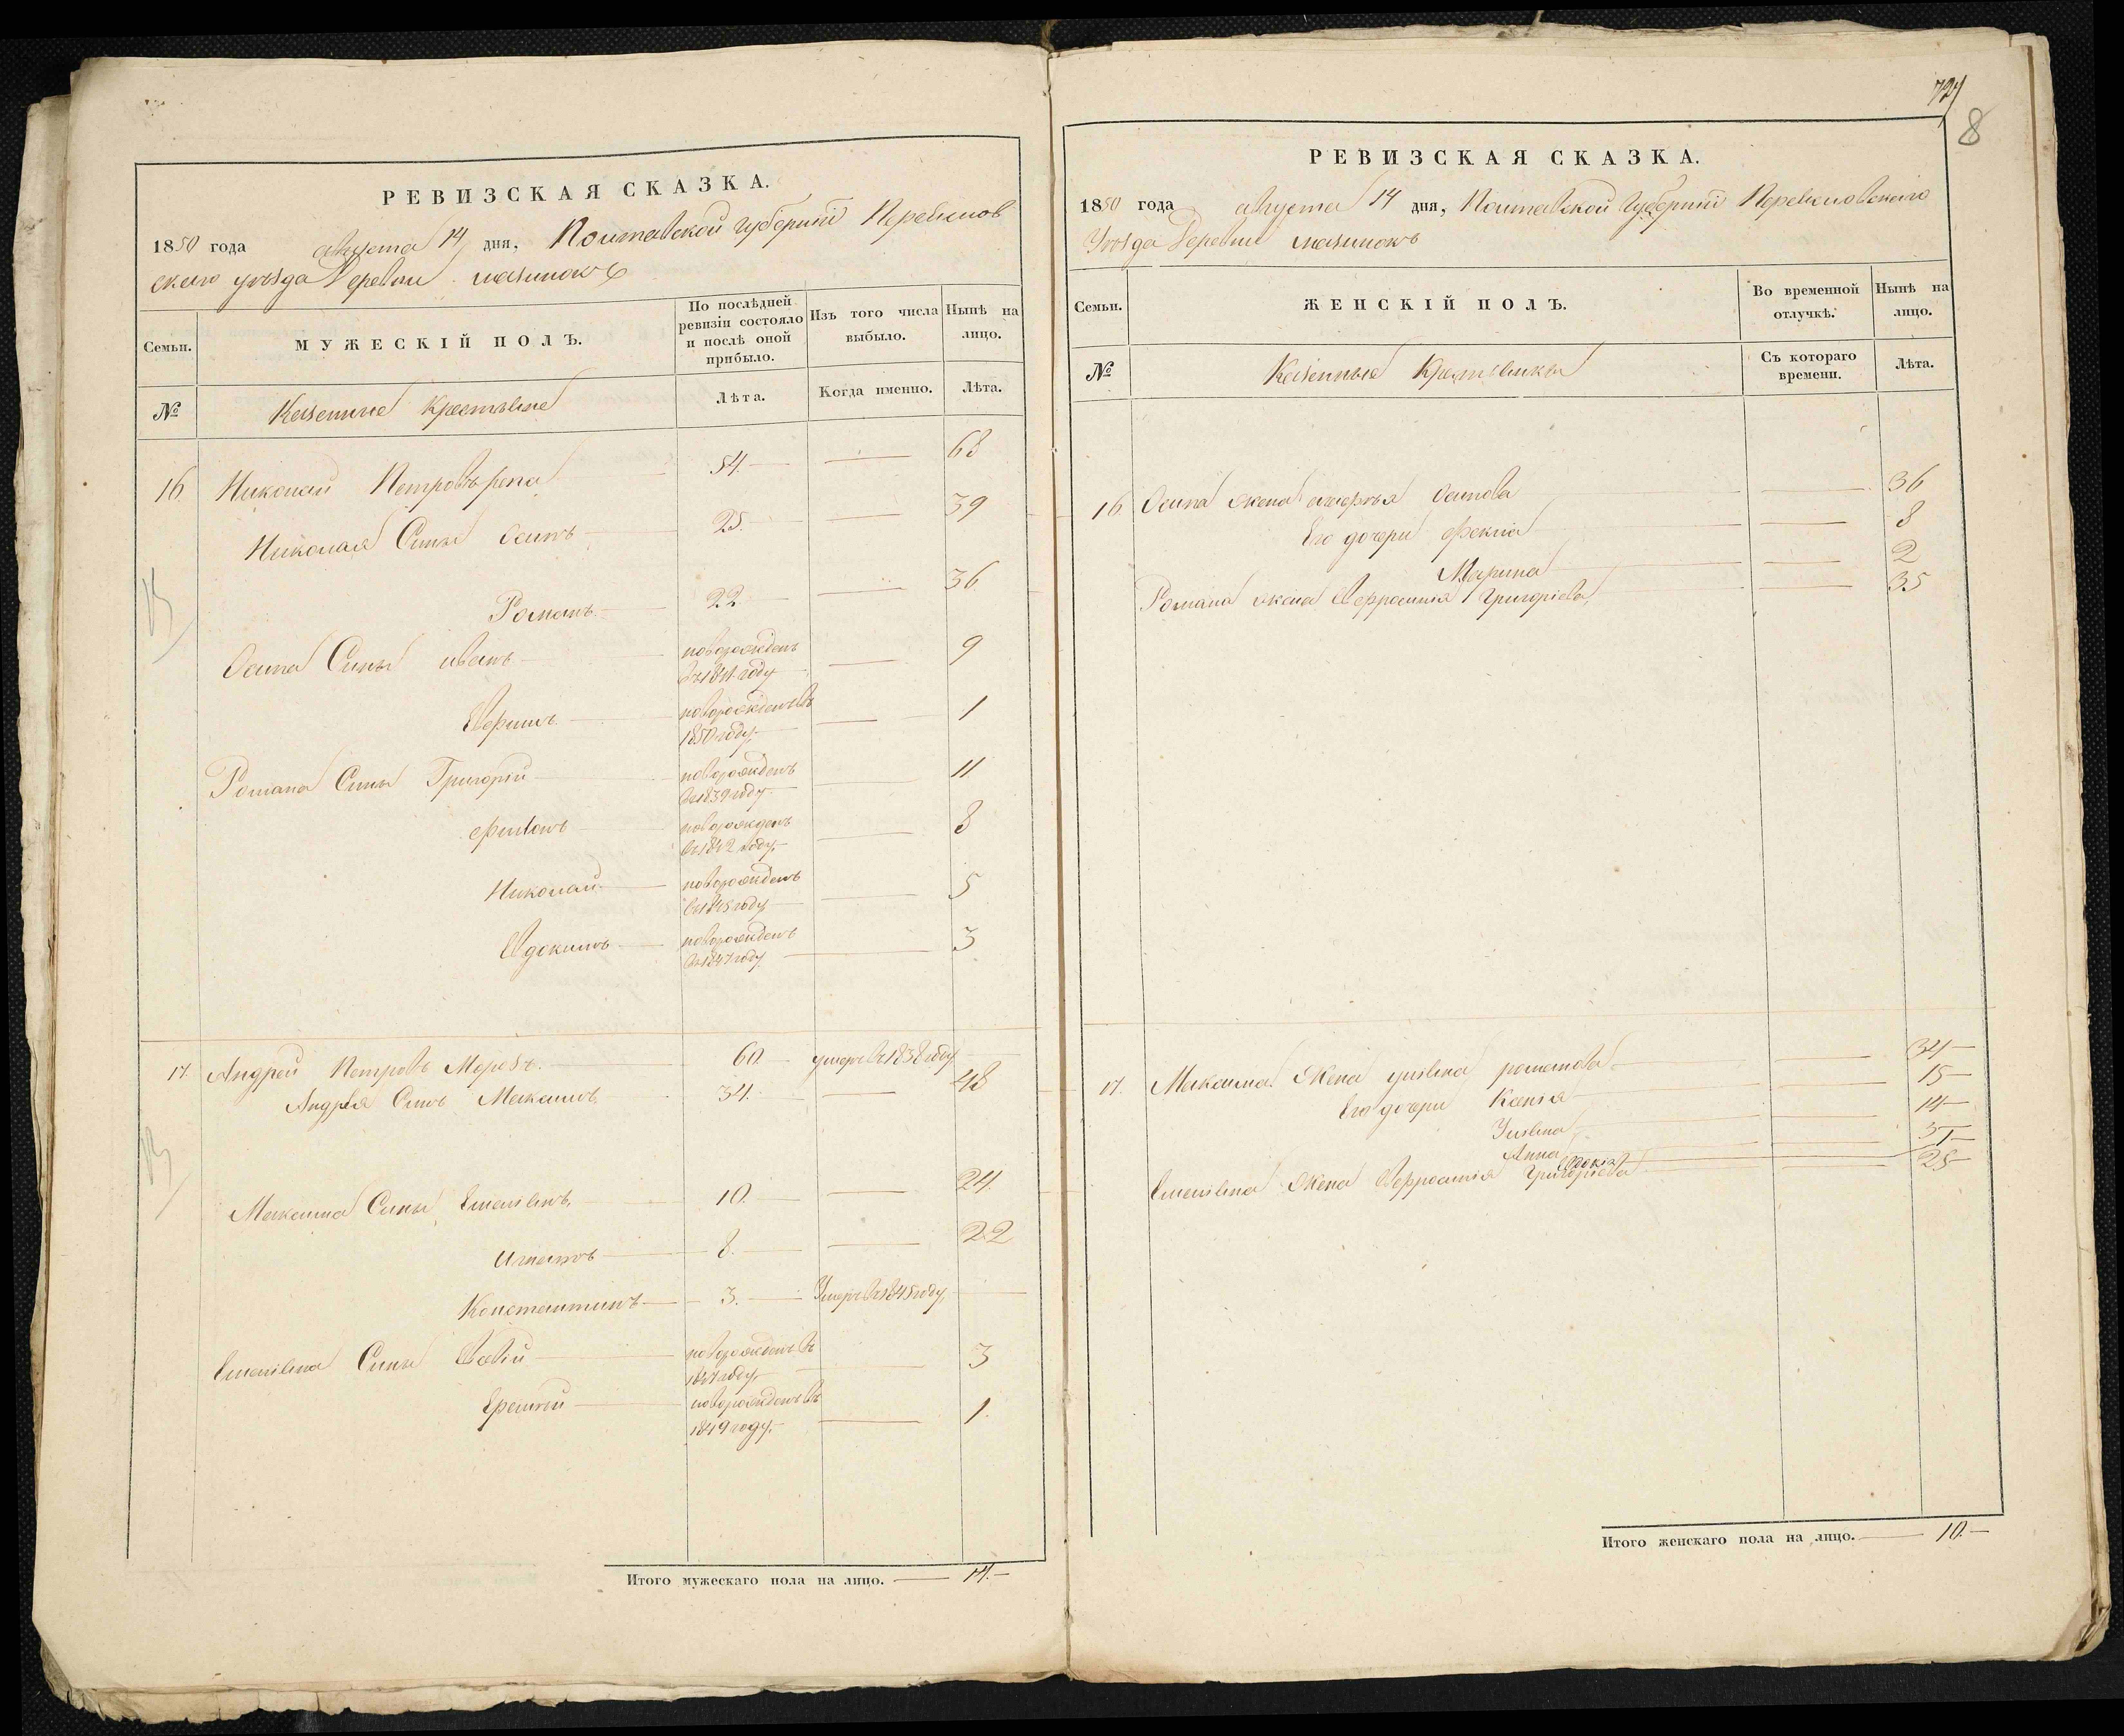 РЕВИЗСКАЯ СКАЗКА.
1850 года августа 14 дня, Полтавской губерніи Переяслов
ского уѣзда Деревни
Семьи.
МУЖЕСКІЙ ПОЛЪ.
По послѣдней ревизіи состояло и послѣ оной прибыло.
Изъ того числа выбыло.
Нынѣ на лицо.
№
Казенные Крестьяне
Лѣта.
Когда именно.
Лѣта.
16 Николай Петровъ репа 54. 68
Николая Сыны Осипъ 25. 39
Романъ 22 36
Осипа Сыны иванъ новорожденъ въ 1841 году 9
новорожденъ въ 1850 году. 1
Романа Сыны Григорій новорожденъ въ 1839 году. 11
новорожденъ въ 1842 году. 8
Николай новорожденъ въ 1845 году 5
Евдокимъ новорожденъ въ 1847 году 3
17. Андрей Петровъ 60. умеръ въ 1838 году
Андрея Сынъ Максимъ 34. 48
Максима Сыны Емельянъ 10. 24.
Игнатъ 8. 22
Константинъ 3. Умеръ въ 1845 году
Емельяна Сыны новорожденъ въ 1847 году 3
Еремѣй новорожденъ въ 1849 году. 1.
Итого мужескаго пола на лицо. 14.
724
8
РЕВИЗСКАЯ СКАЗКА.
1850 года августа 14 дня, Полтавской Губерніи Переясловского
Уѣзда Деревни
Семьи.
ЖЕНСКІЙ ПОЛЪ.
Во временной отлучкѣ.
Нынѣ на лицо.
№
Казенные Крестьянки
Съ котораго времени.
Лѣта.
16 Осипа жена Осипова 36
Его дочери Фекла 8
Марина 2
Романа жена Евфросинія Григоріева 35
17. Максима Жена уліяна романова 34
Его дочери Ксенія 15
Уліяна 14
Анна
Евдокія
Емеляна Жена Евфросинія Григоріева 25
Итого женскаго пола на лицо. 10.